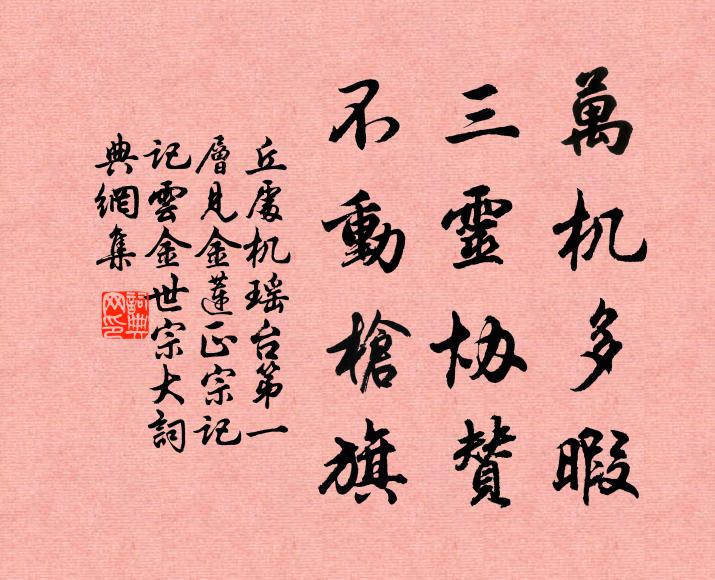 萬机多暇
三靈协贊
不動槍旗
丘處机瑶台第一
層見金蓮正宗记
记雲金世宗大詞
典網集
詞典网印